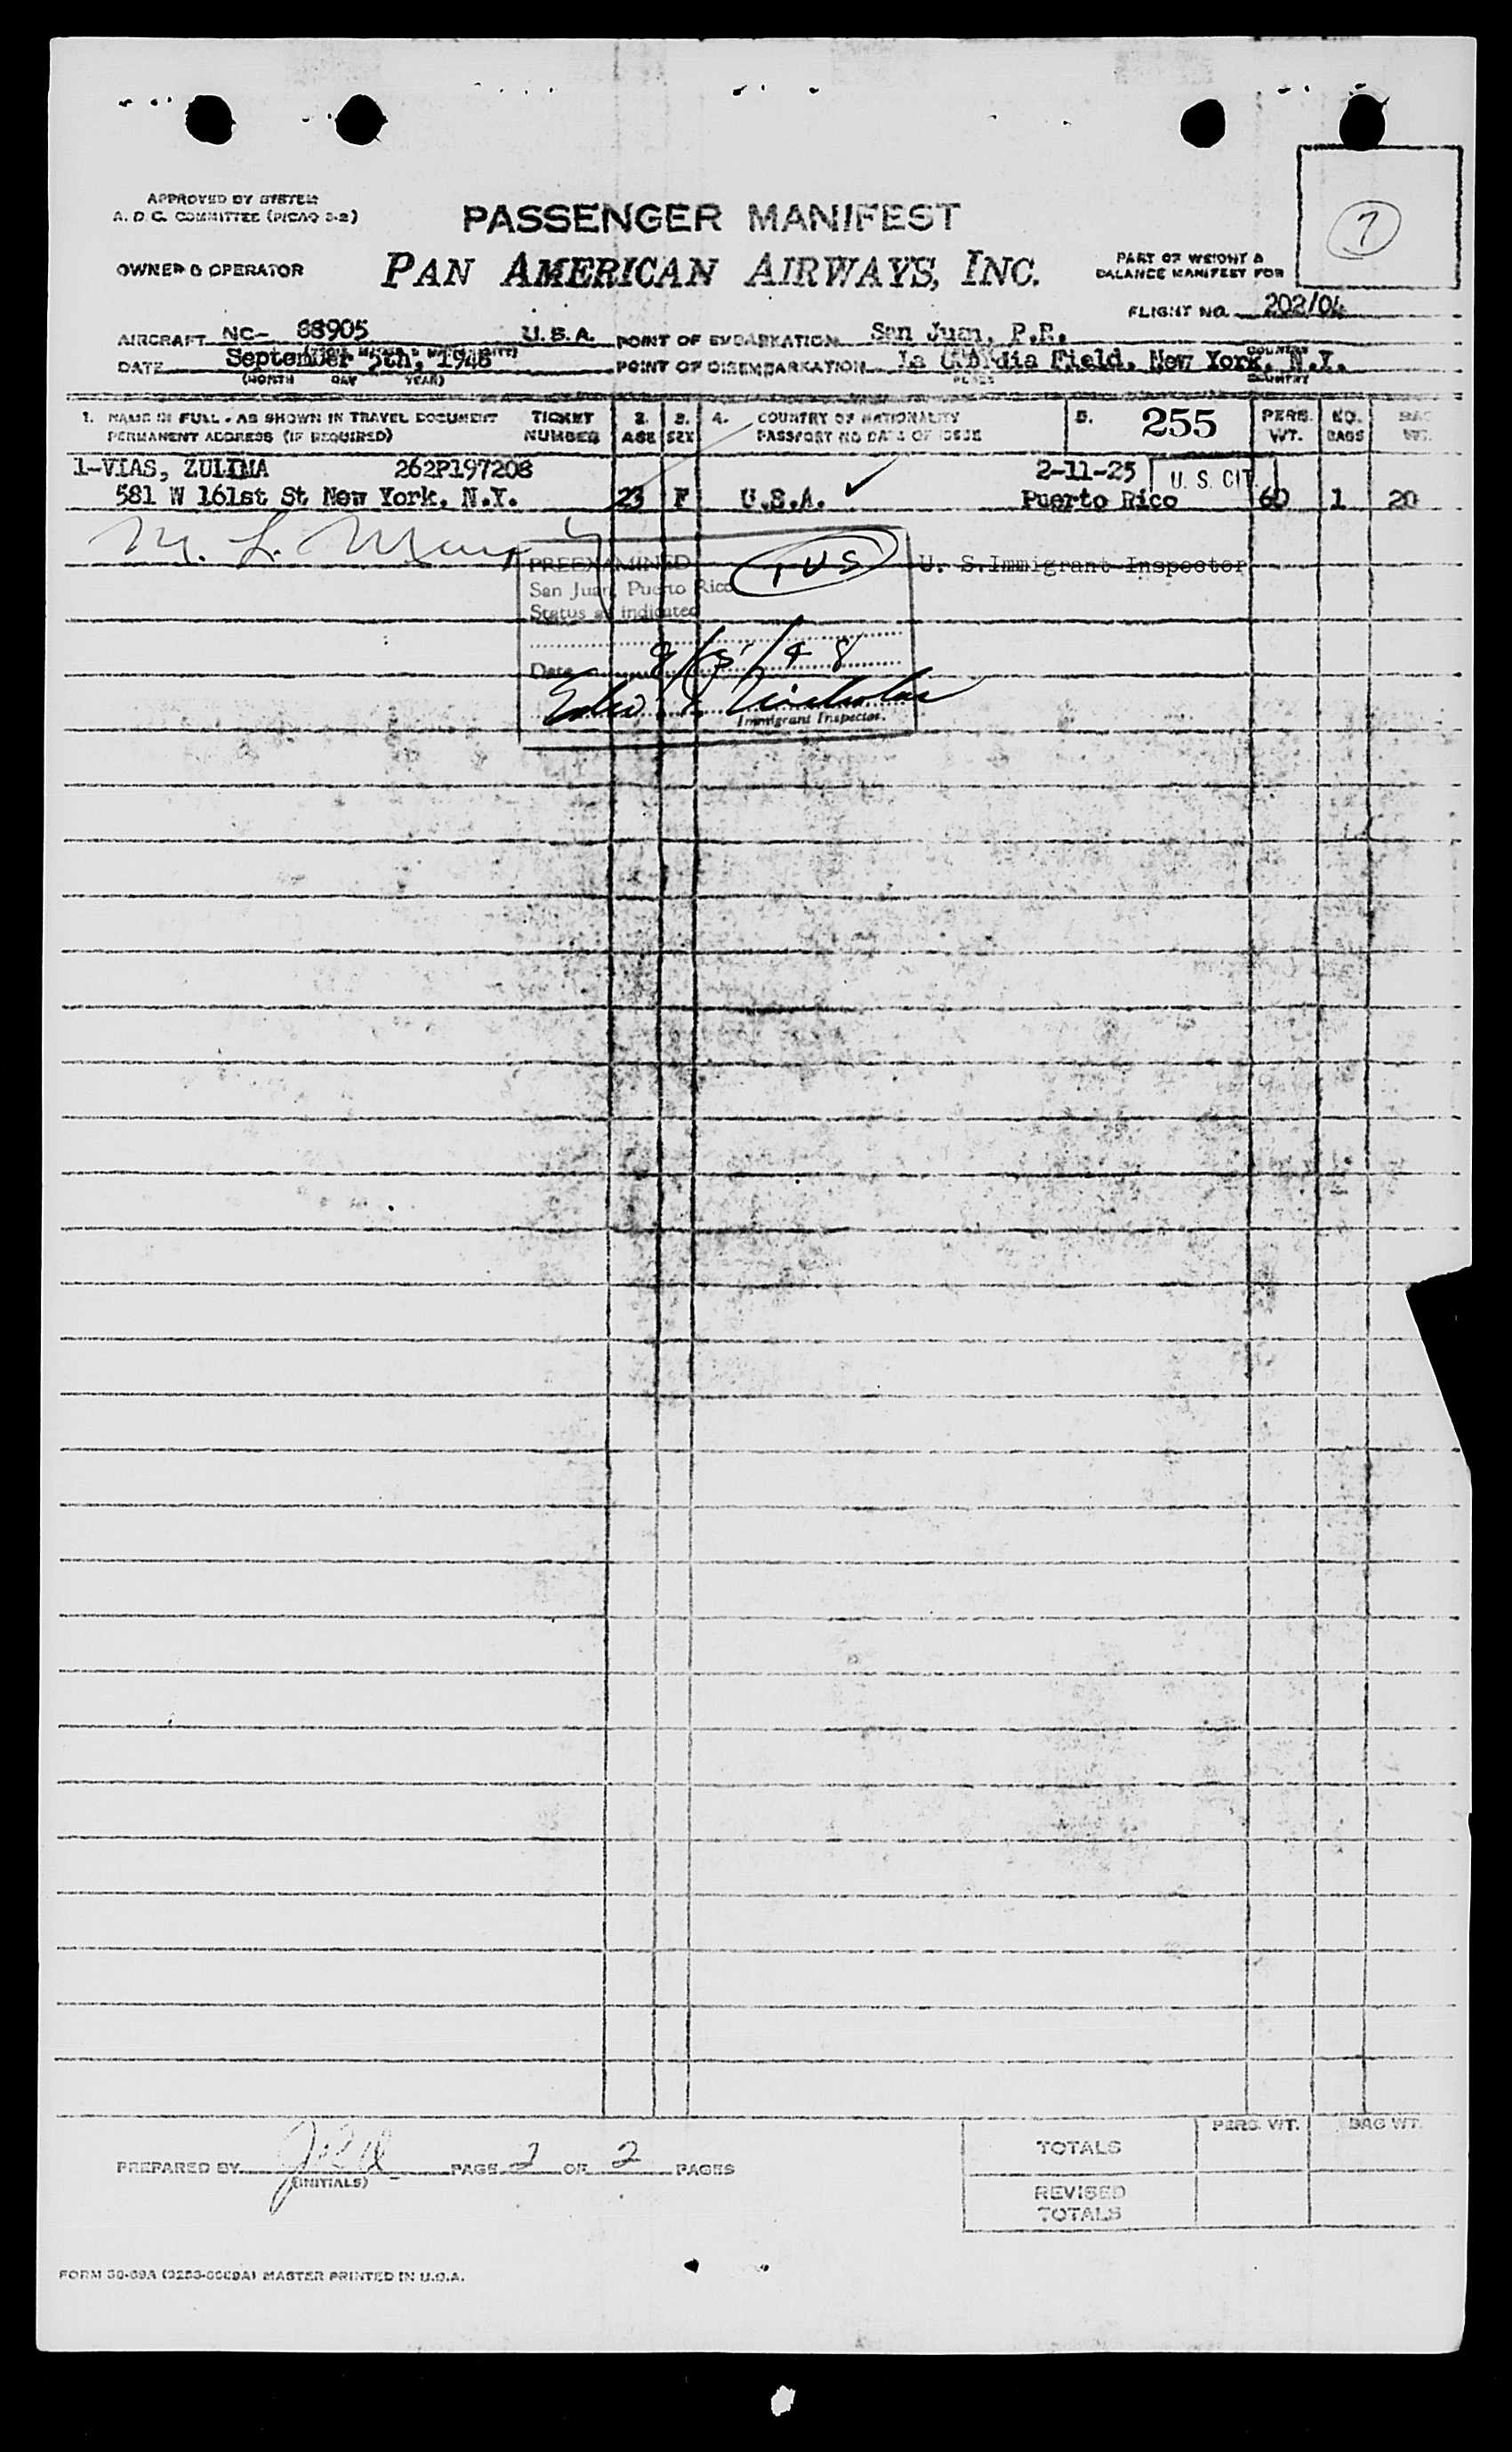 APPROVED BY SYSTEM
A. D. C. COMMITTEE (PICAO 3-2)
PASSENGER MANIFEST
7
OWNER & OPERATOR
PAN AMERICAN AIRWAYS, INC.
PART OF WEIGHT &
BALANCE MANIFEST FOR
FLIGHT NO. 202/04
AIRCRAFT NC- 88905 U.S.A. POINT OF EMBARKATION San Juan, P.R.
DATE September 5th, 1948 POINT OF DISEMBARKATION La Field, New York, N.Y.
(MONTH DAY YEAR) PLACE COUNTRY
1. NAME IN FULL - AS SHOWN IN TRAVEL DOCUMENT TICKET 2. 3. 4. COUNTRY OF NATIONALITY 5. 255 PERS. NO. BAG
PERMANENT ADDRESS (IF REQUIRED) NUMBER AGE SEX PASSPORT NO DATE OF ISSUE WT. BAGS WT.
1-VIAS, ZULIMA 262P197208 2-11-25 U. S. CIT.
581 W 161st St New York, N.Y. 23 F U.S.A. ✓ Puerto Rico 60 1 20
M. L.
PREEXAMINED 1 US U. S. Immigrant Inspector
San Juan, Puerto Rico
Status as indicated
Date 9/5/48
Nicholas
Immigrant Inspector.
PREPARED BY PAGE 2 OF 2 PAGES
(INITIALS)
PERS. WT. BAG WT.
TOTALS
REVISED
TOTALS
MASTER PRINTED IN U.S.A.